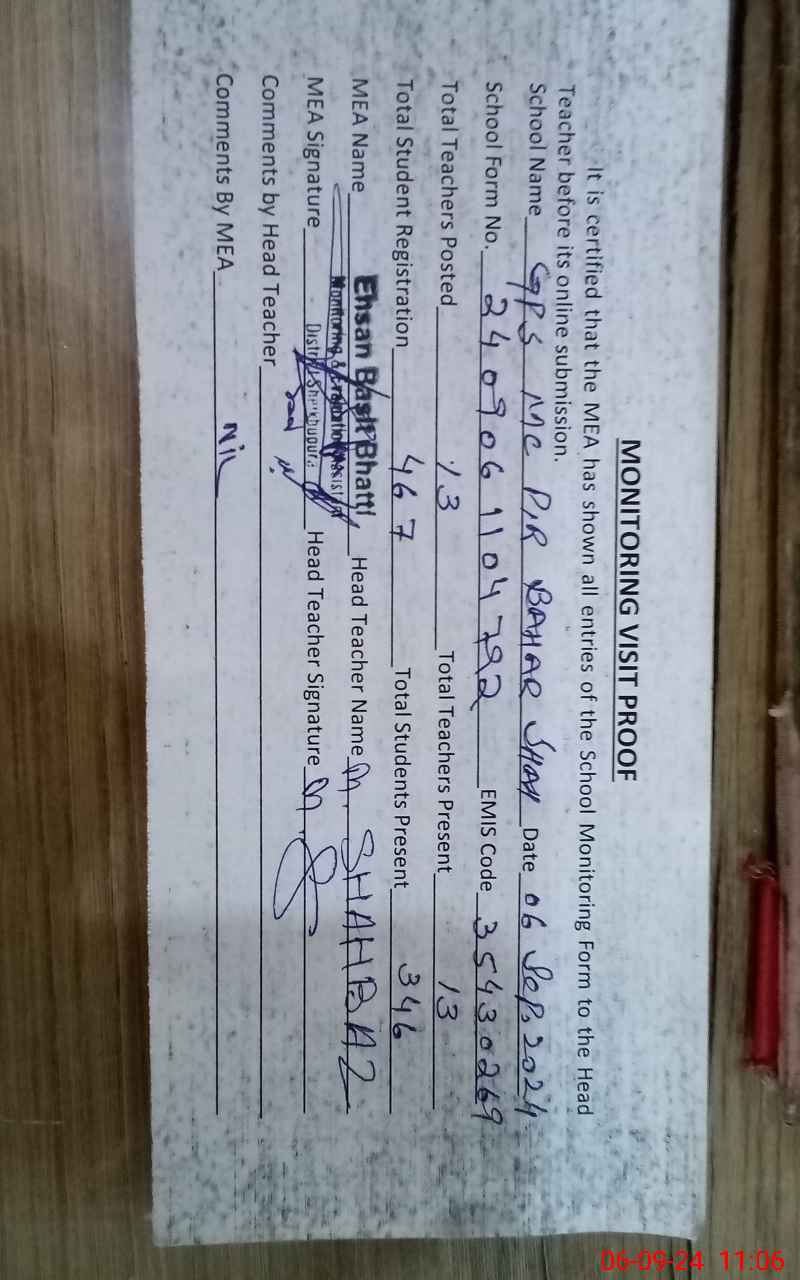 MONITORING VISIT PROOF
It is certified that the MEA has shown all entries of the School Monitoring Form to the Head
Teacher before its online submission.
School Name GPS MC PIR BAHAR SHAH Date 06 Sep. 2024
School Form No. 240906 1104792 EMIS Code 35430269
Total Teachers Posted 13 Total Teachers Present 13
Total Student Registration 467 Total Students Present 346
MEA Name Ehsan Basit Bhatti Head Teacher Name M. SHAHBAZ
Monitoring & Evaluation Assistant
MEA Signature District Sheikhupura Head Teacher Signature
Comments by Head Teacher
Comments By MEA Nil
06-09-24 11:06